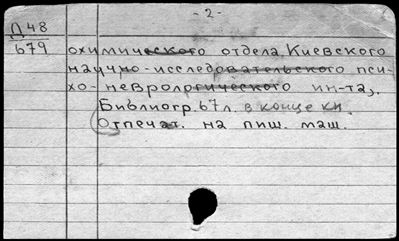 - 2 -
Д48
679
охимического отдела Киевского
научно-исследовательского пси-
хо-неврологического ин-та,.
Библиогр. 67 л. в конце кн.
Отпечат. на пиш. маш.